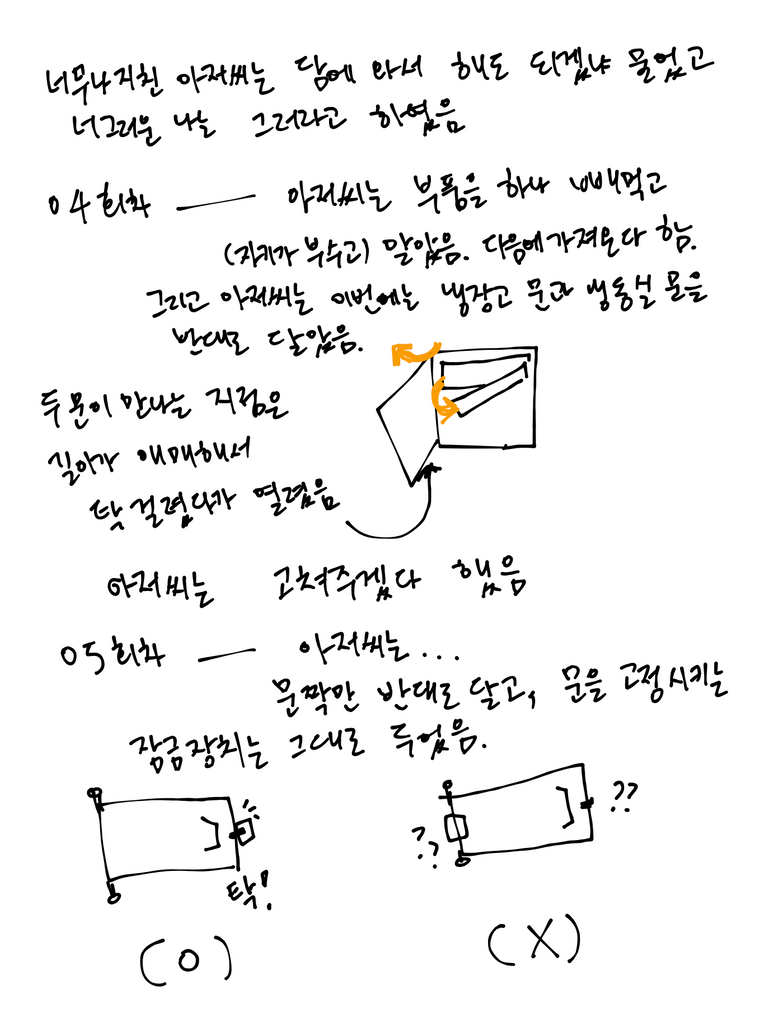 너무나지친 아저씨는 담에 와서 해도 되겠냐 물었고
너그러운 나는 그러라고 하였음
04회차 — 아저씨는 부품을 하나 빼먹고
(자기가 부수고) 말았음. 다음에가져온다 함.
그리고 아저씨는 이번에는 냉장고 문과 냉동실 문을
반대로 달았음.
두문이 만나는 지점은
길이가 애매해서
탁걸렸다가 열렸음
아저씨는 고쳐주겠다 했음
05회차 — 아저씨는...
문짝만 반대로 달고, 문을 고정시키는
잠금장치는 그대로 두었음.
탁!
??
??
(O)
(X)